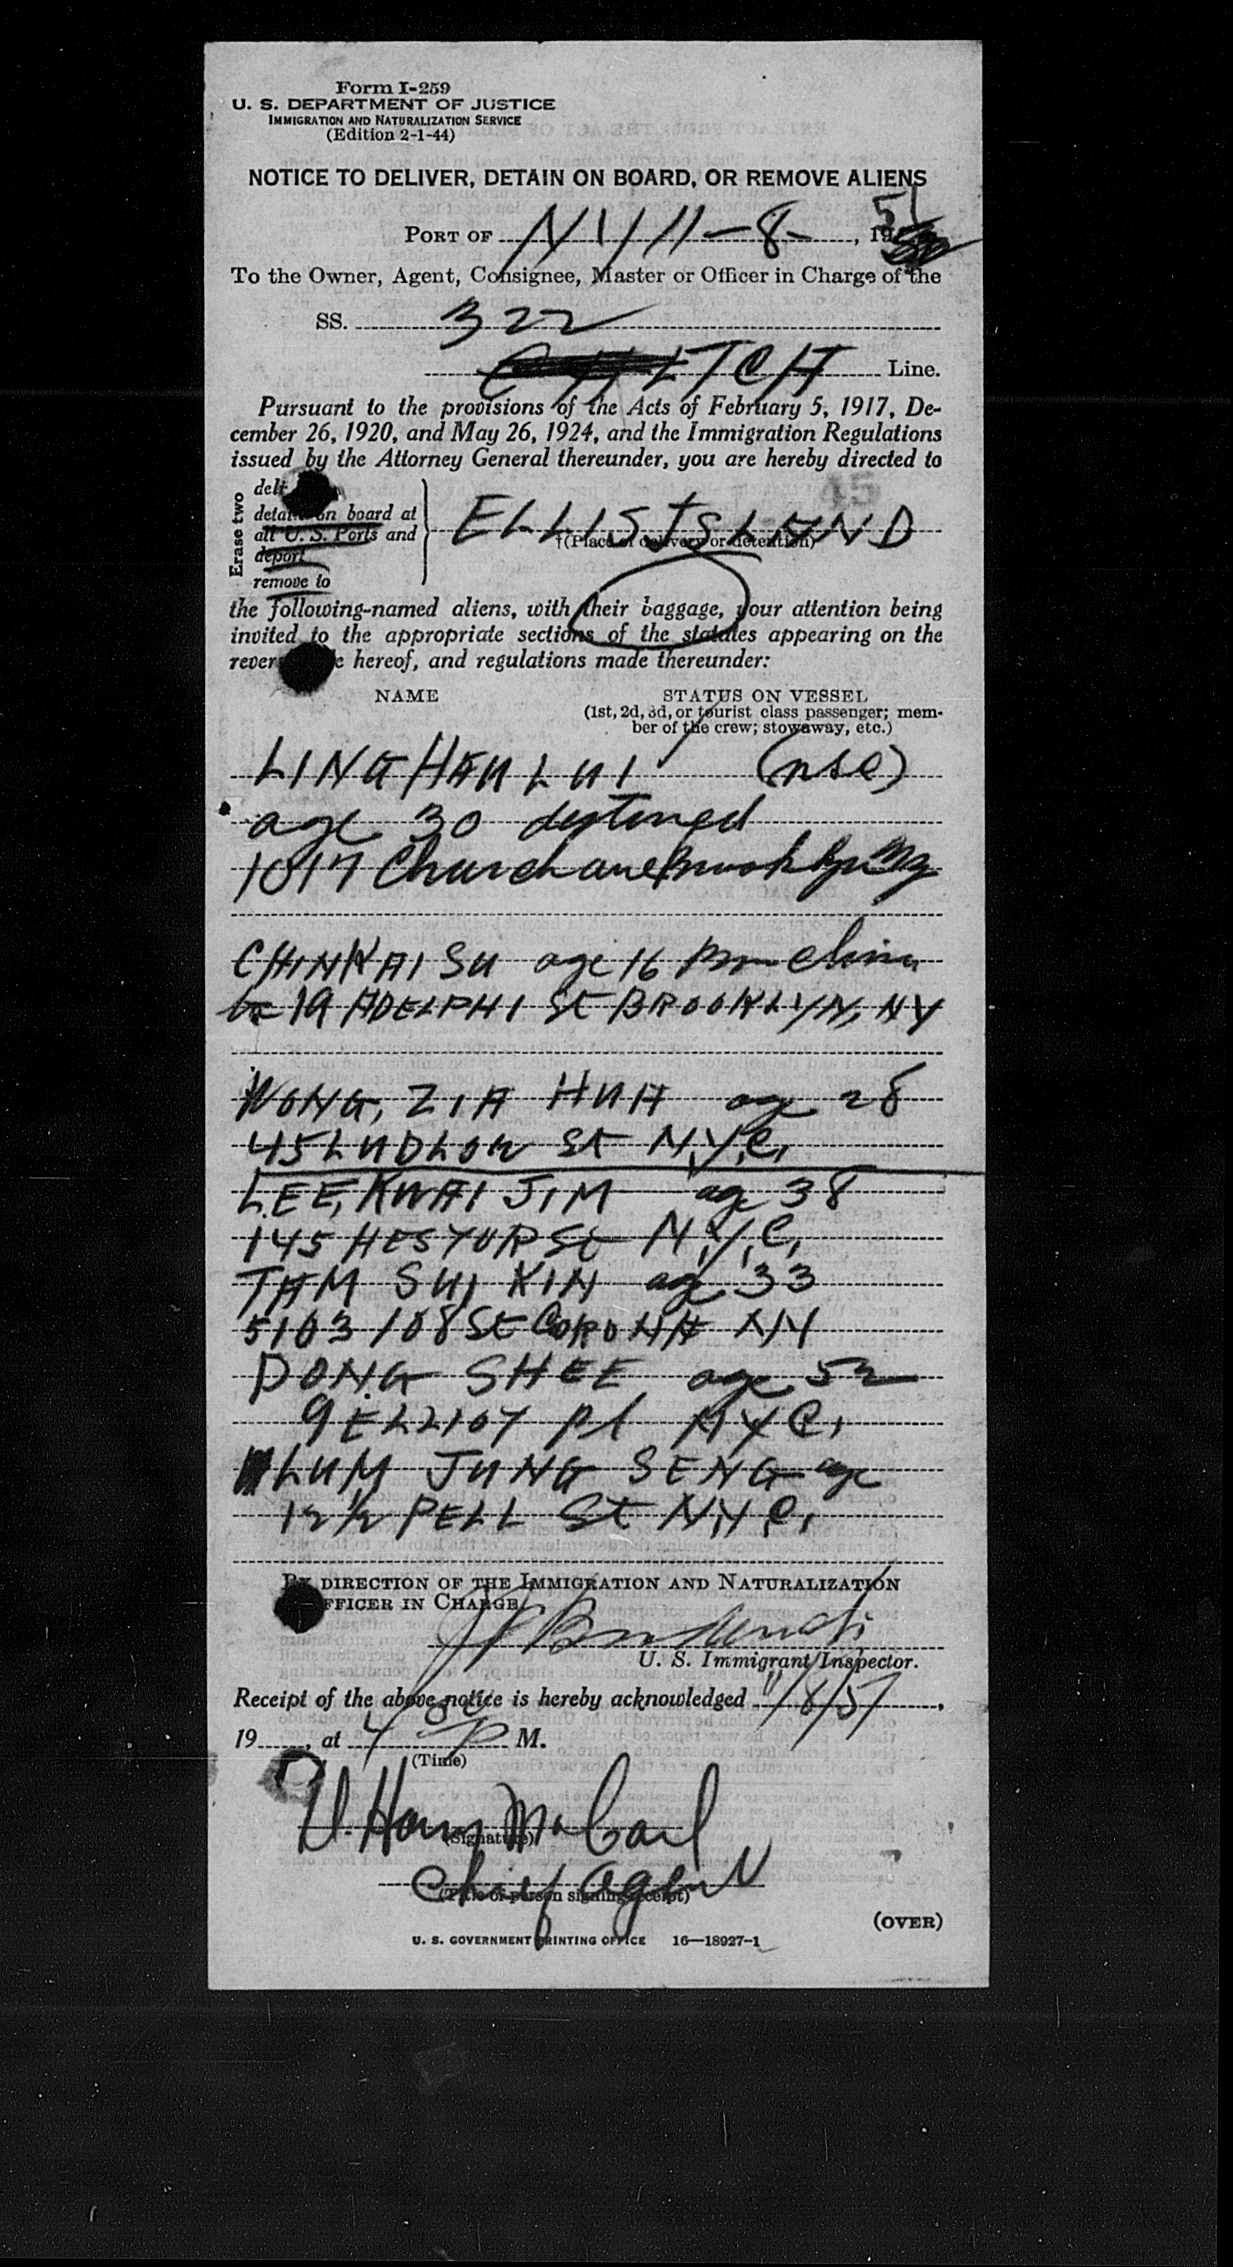 Form I-259
U. S. DEPARTMENT OF JUSTICE
IMMIGRATION AND NATURALIZATION SERVICE
(Edition 2-1-44)
NOTICE TO DELIVER, DETAIN ON BOARD, OR REMOVE ALIENS
PORT OF NY 11-8-, 1951
To the Owner, Agent, Consignee, Master or Officer in Charge of the
SS. 322
Line.
Pursuant to the provisions of the Acts of February 5, 1917, De-
cember 26, 1920, and May 26, 1924, and the Immigration Regulations
issued by the Attorney General thereunder, you are hereby directed to
Erase two
on board at
all U. S. Ports and
deport
remove to
ELLIS ISLAND
†(Place of delivery or detention)
the following-named aliens, with their baggage, your attention being
invited to the appropriate sections of the statutes appearing on the
hereof, and regulations made thereunder:
NAME STATUS ON VESSEL
(1st, 2d, 3d, or tourist class passenger; mem-
ber of the crew; stowaway, etc.)
LING HAU LUI
age 30 destined
1017 Church ave Brooklyn NY
CHIN KAI SU age 16 Born China
19 ADELPHI St BROOKLYN, NY
WONG, ZIA HUA age 28
45 LUDLOW St N.Y.C.
LEE, KWAI JIM age 38
145 HESTOR St N.Y.C.
TAM SUI KIN age 33
5103 108 St CORONA NY
DONG SHEE age 52
9 Pl NYC.
LUM JUNG SENG age
12 1/2 PELL St N.Y.C.
BY DIRECTION OF THE IMMIGRATION AND NATURALIZATION
OFFICER IN CHARGE.
U. S. Immigrant Inspector.
Receipt of the above notice is hereby acknowledged 11/8/51,
19, at 4 P M.
(Time)
(Signature)
Chief Agent
(Title of person signing receipt)
(OVER)
U. S. GOVERNMENT PRINTING OFFICE 16—18927-1